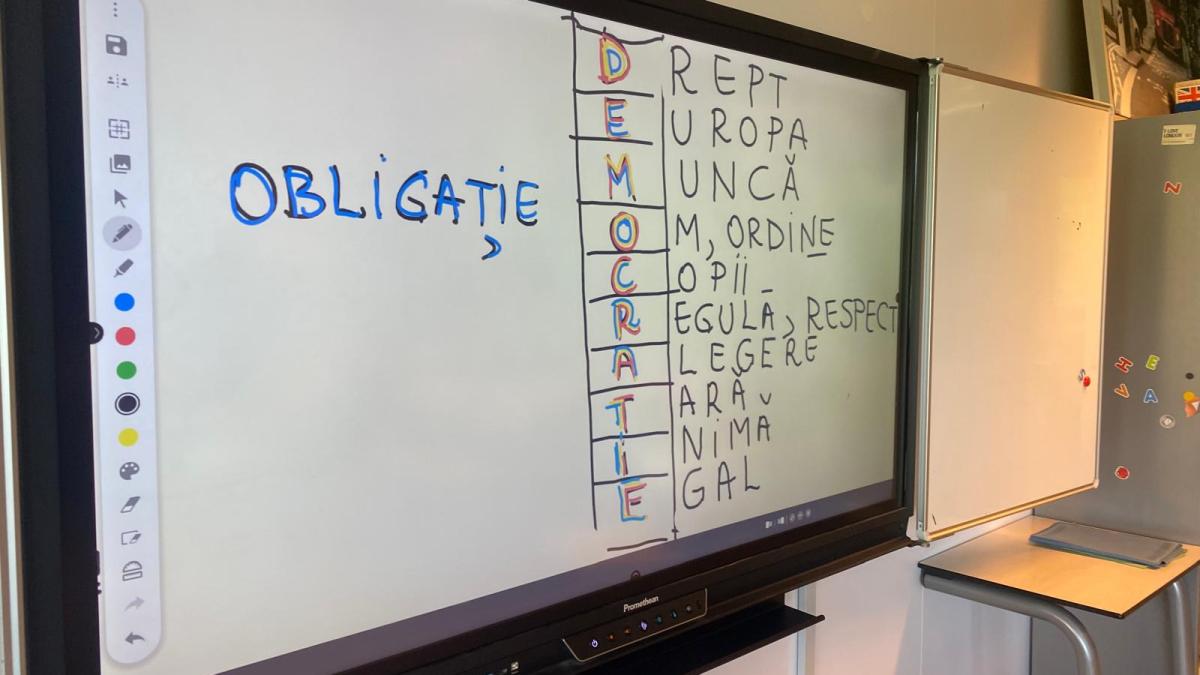 OBLIGAȚIE
DREPT
EUROPA
MUNCĂ
OM, ORDINE
COPII
REGULĂ, RESPECT
ALEGERE
ȚARĂ
INIMĂ
EGAL
Promethean
I LOVE LONDON